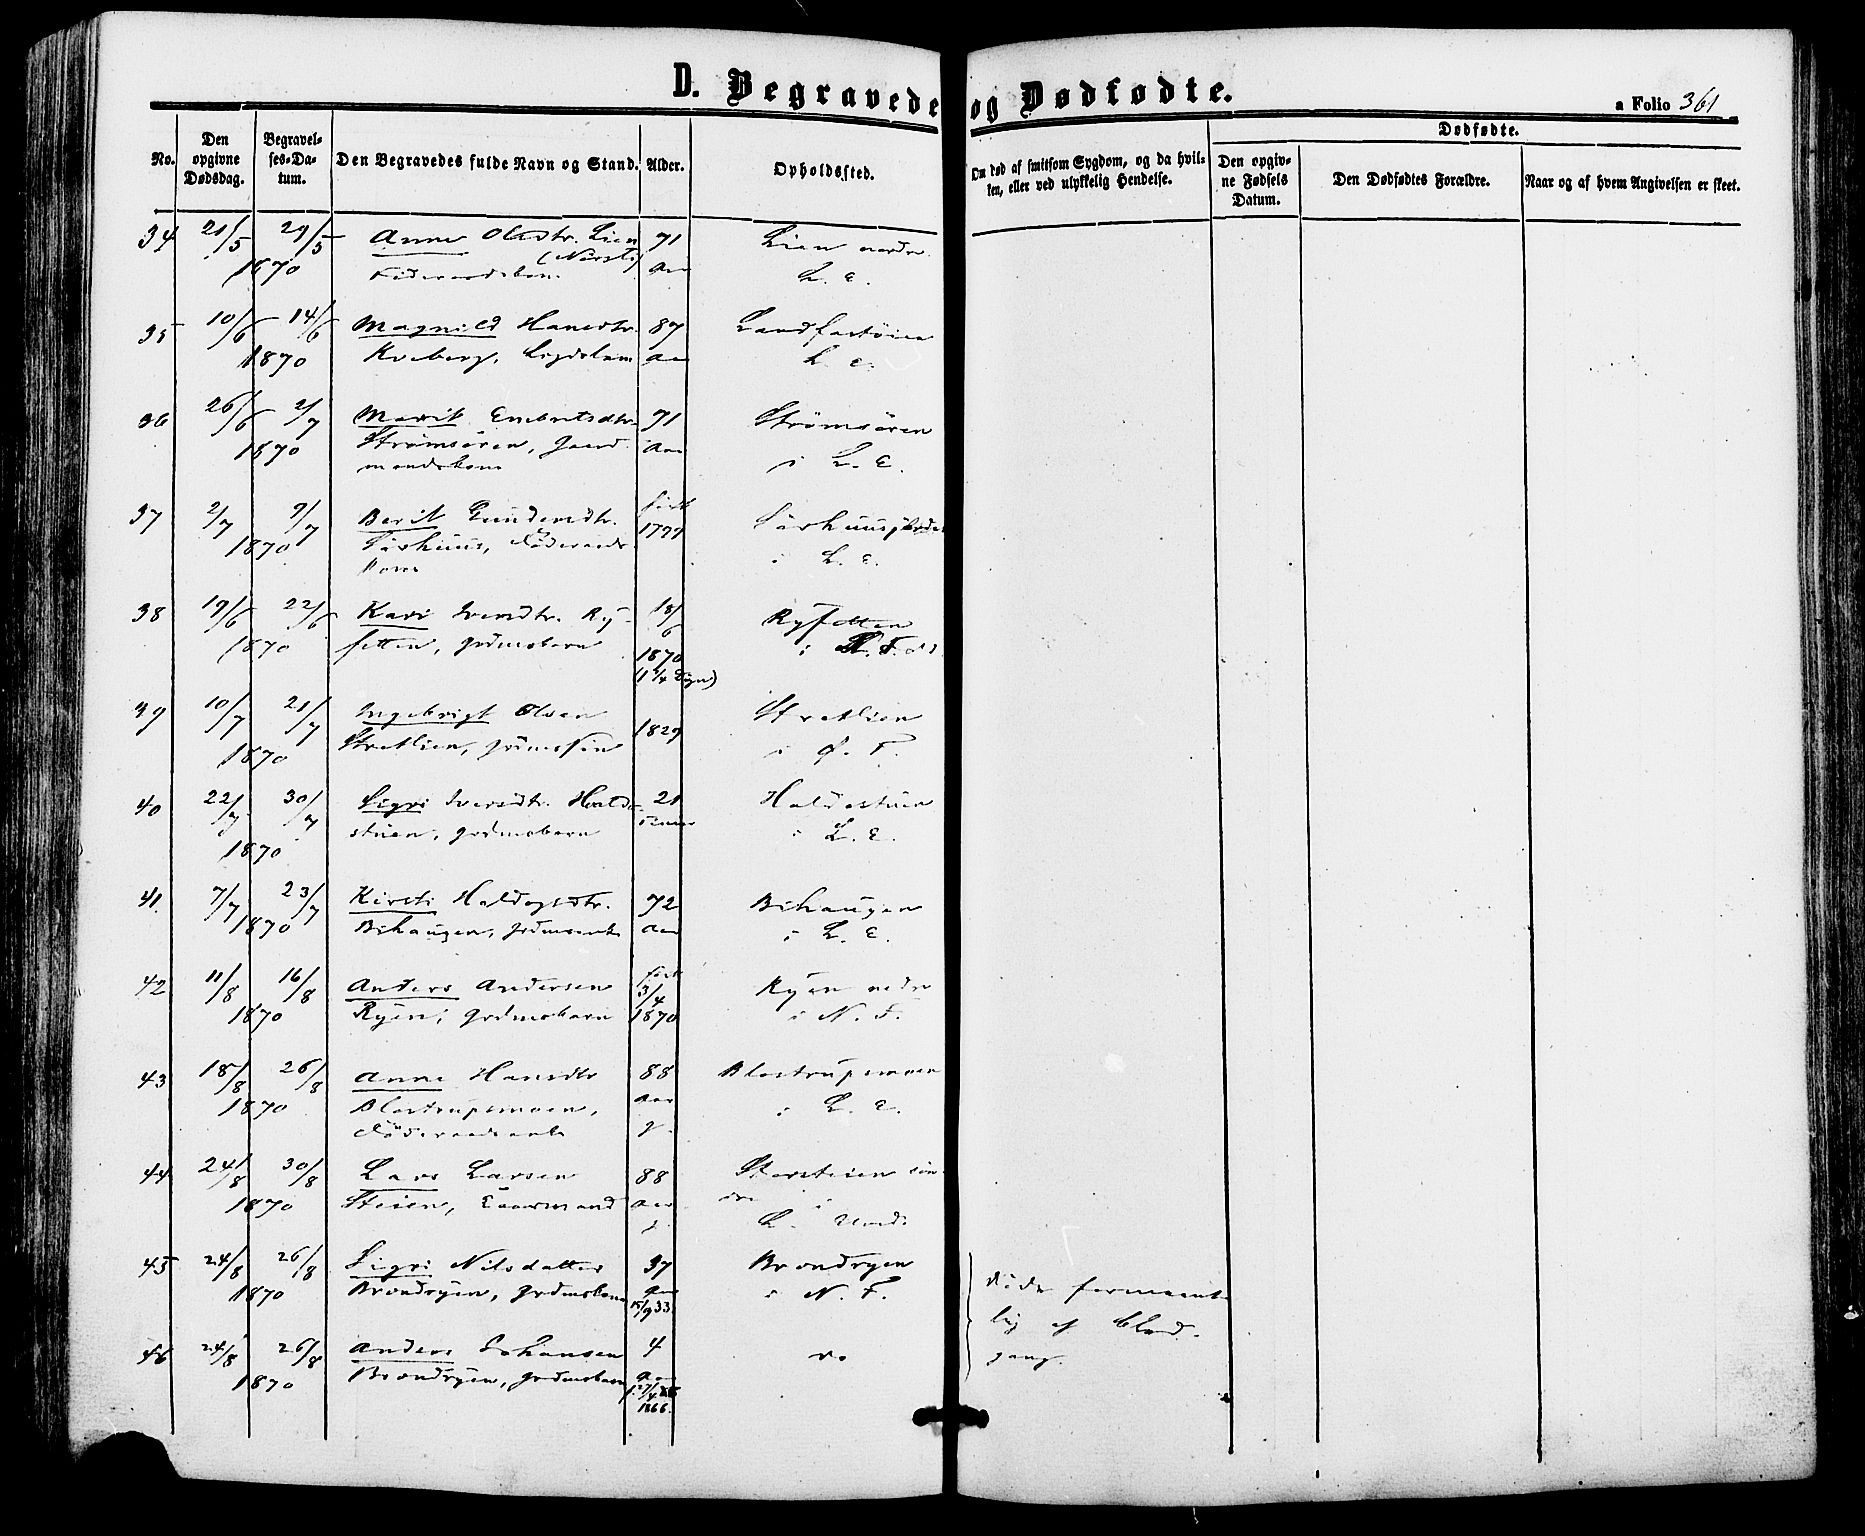 D. Begravede og Dødfødte.
a Folio 361
No.
Den opgivne Dødsdag.
Begravelses-Datum.
Den Begravedes fulde Navn og Stand.
Alder.
Opholdssted.
Om død af smitsom Sygdom, og da hvilken, eller ved ulykkelig Hendelse.
Dødfødte.
Den opgivne Fødsels Datum.
Den Dødfødtes Forældre.
Naar og af hvem Angivelsen er skeet.
34 21/5 29/5 Anne Olsdtr. Lien 71 Lien nordre
1870 (Nørsti) aar L. E.
35 10/6 14/6 Magnild Hansdtr. 87
1870 Kveberg, Lægdslem aar L. E.
36 26/6 2/7 Marit Embretsdtr. 71 Strømsøren
1870 Strømsøren, gaard- aar i L. E.
mandskone
37 2/7 9/7 Berit Gundersdtr. født
1870 Sørhuus, Føderaads- 1777 i L. E.
kone
38 19/6 22/6 Kari Iversdtr. Ry- 18/6 Rysetten
1870 setten, grdmsbarn 1870
(1 1/4 Døgn)
39 10/7 21/7 Ingebrigt Olsen 1829 Stretlien
1870 Stretlien, grdmssøn i Ø. F.
40 22/7 30/7 Sigri Iversdtr. Holde- 21 Holdestuen
1870 stuen, grdmsbarn timer i L. E.
41 7/7 23/7 Kirsti Haldogsdtr. 72 Bihaugen
1870 Bihaugen, grdmsenke aar i L. E.
42 11/8 16/8 Anders Andersen født Ryen nedre
1870 Ryen, grdmsbarn 3/4 1870 i N. F.
43 18/8 26/8 Anne Hansdtr 88 Blostrupmoen
1870 Blostrupmoen, aar i L. E.
Føderaadsenke g.
44 24/8 30/8 Lars Larsen 88 Storsteien søn-
1870 Steien, Enkemand aar dre i
L. Unds
45 24/8 26/8 Sigri Nilsdatter 37 Brandryen
1870 Brandryen, grdmskone aar i N. F.
15/9 33
46 24/8 26/8 Anders Johansen 4 do
1870 Brandryen, grdmsbarn aar
f. 27/4
1866.
døde formeent-
lig af blod-
gang.